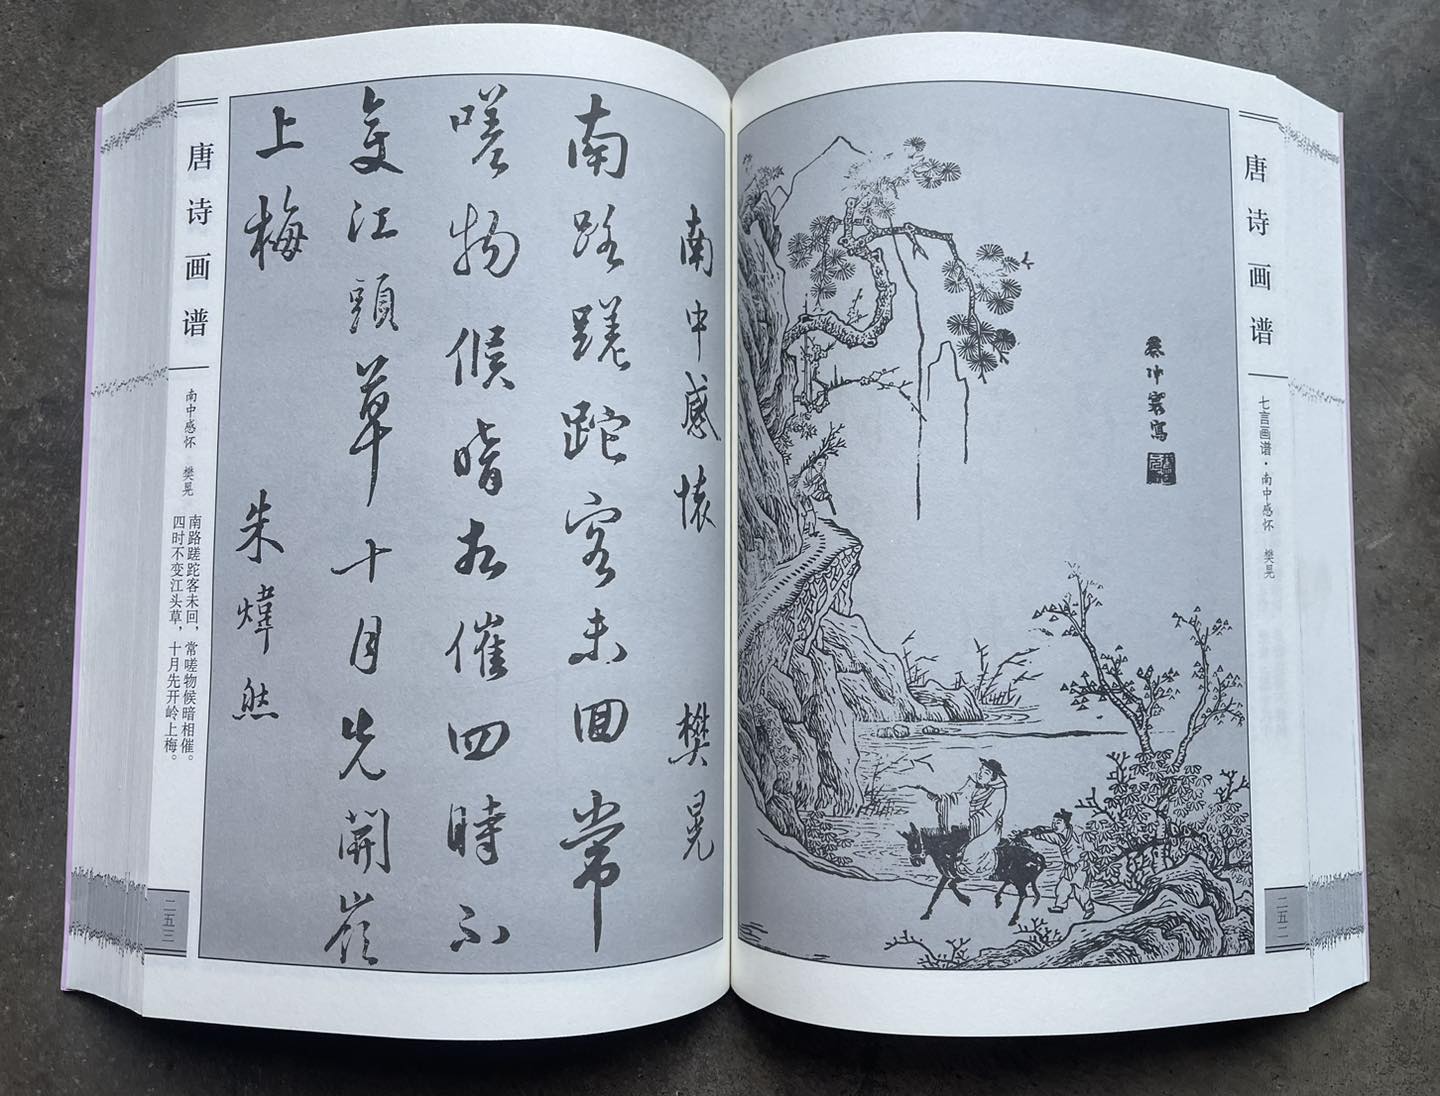 唐诗画谱
七言画谱·南中感怀 樊晃
二五二
蔡冲寰寫
南中感懷 樊晃
南路蹉跎客未回常
嗟物候暗相催四時不
變江頭草十月先開嶺
上梅 朱煒然
唐诗画谱
南中感怀 樊晃
南路蹉跎客未回，常嗟物候暗相催。
四时不变江头草，十月先开岭上梅。
二五三